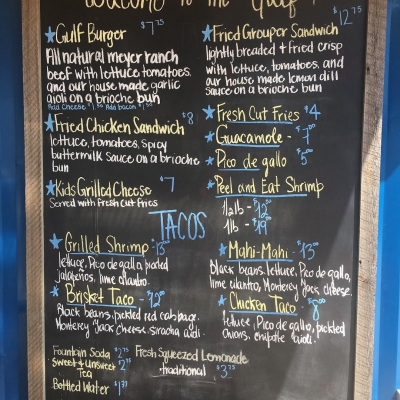 Welcome to the Gulf!
Gulf Burger $7.75
All natural meyer ranch
beef with lettuce tomatoes,
and our house made garlic
aioli on a brioche bun
Add Cheese $1.50 Add bacon
Fried Chicken Sandwich $8
lettuce, tomatoes, spicy
buttermilk sauce on a brioche
bun
Kids Grilled Cheese $7
Served with fresh cut fries
Fried Grouper Sandwich $12.75
lightly breaded + fried crisp
with lettuce, tomatoes, and
our house made lemon dill
sauce on a brioche bun
Fresh Cut Fries $4
Guacamole -
Pico de gallo $5
Peel and Eat Shrimp
1/2lb -
1lb - $19
TACOS
Grilled Shrimp -
lettuce, Pico de gallo, pickled
jalapeños, lime cilantro.
Brisket Taco -
Black beans, pickled red cabbage,
Monterey Jack cheese, siracha aioli.
Mahi-Mahi -
Black beans, lettuce, Pico de gallo,
lime cilantro, Monterey Jack cheese.
Chicken Taco -
lettuce, Pico de gallo, pickled
onions, chipotle aioli.
Fountain Soda $2.75
Sweet + Unsweet
Tea
Bottled Water
Fresh Squeezed Lemonade
-traditional $3.75